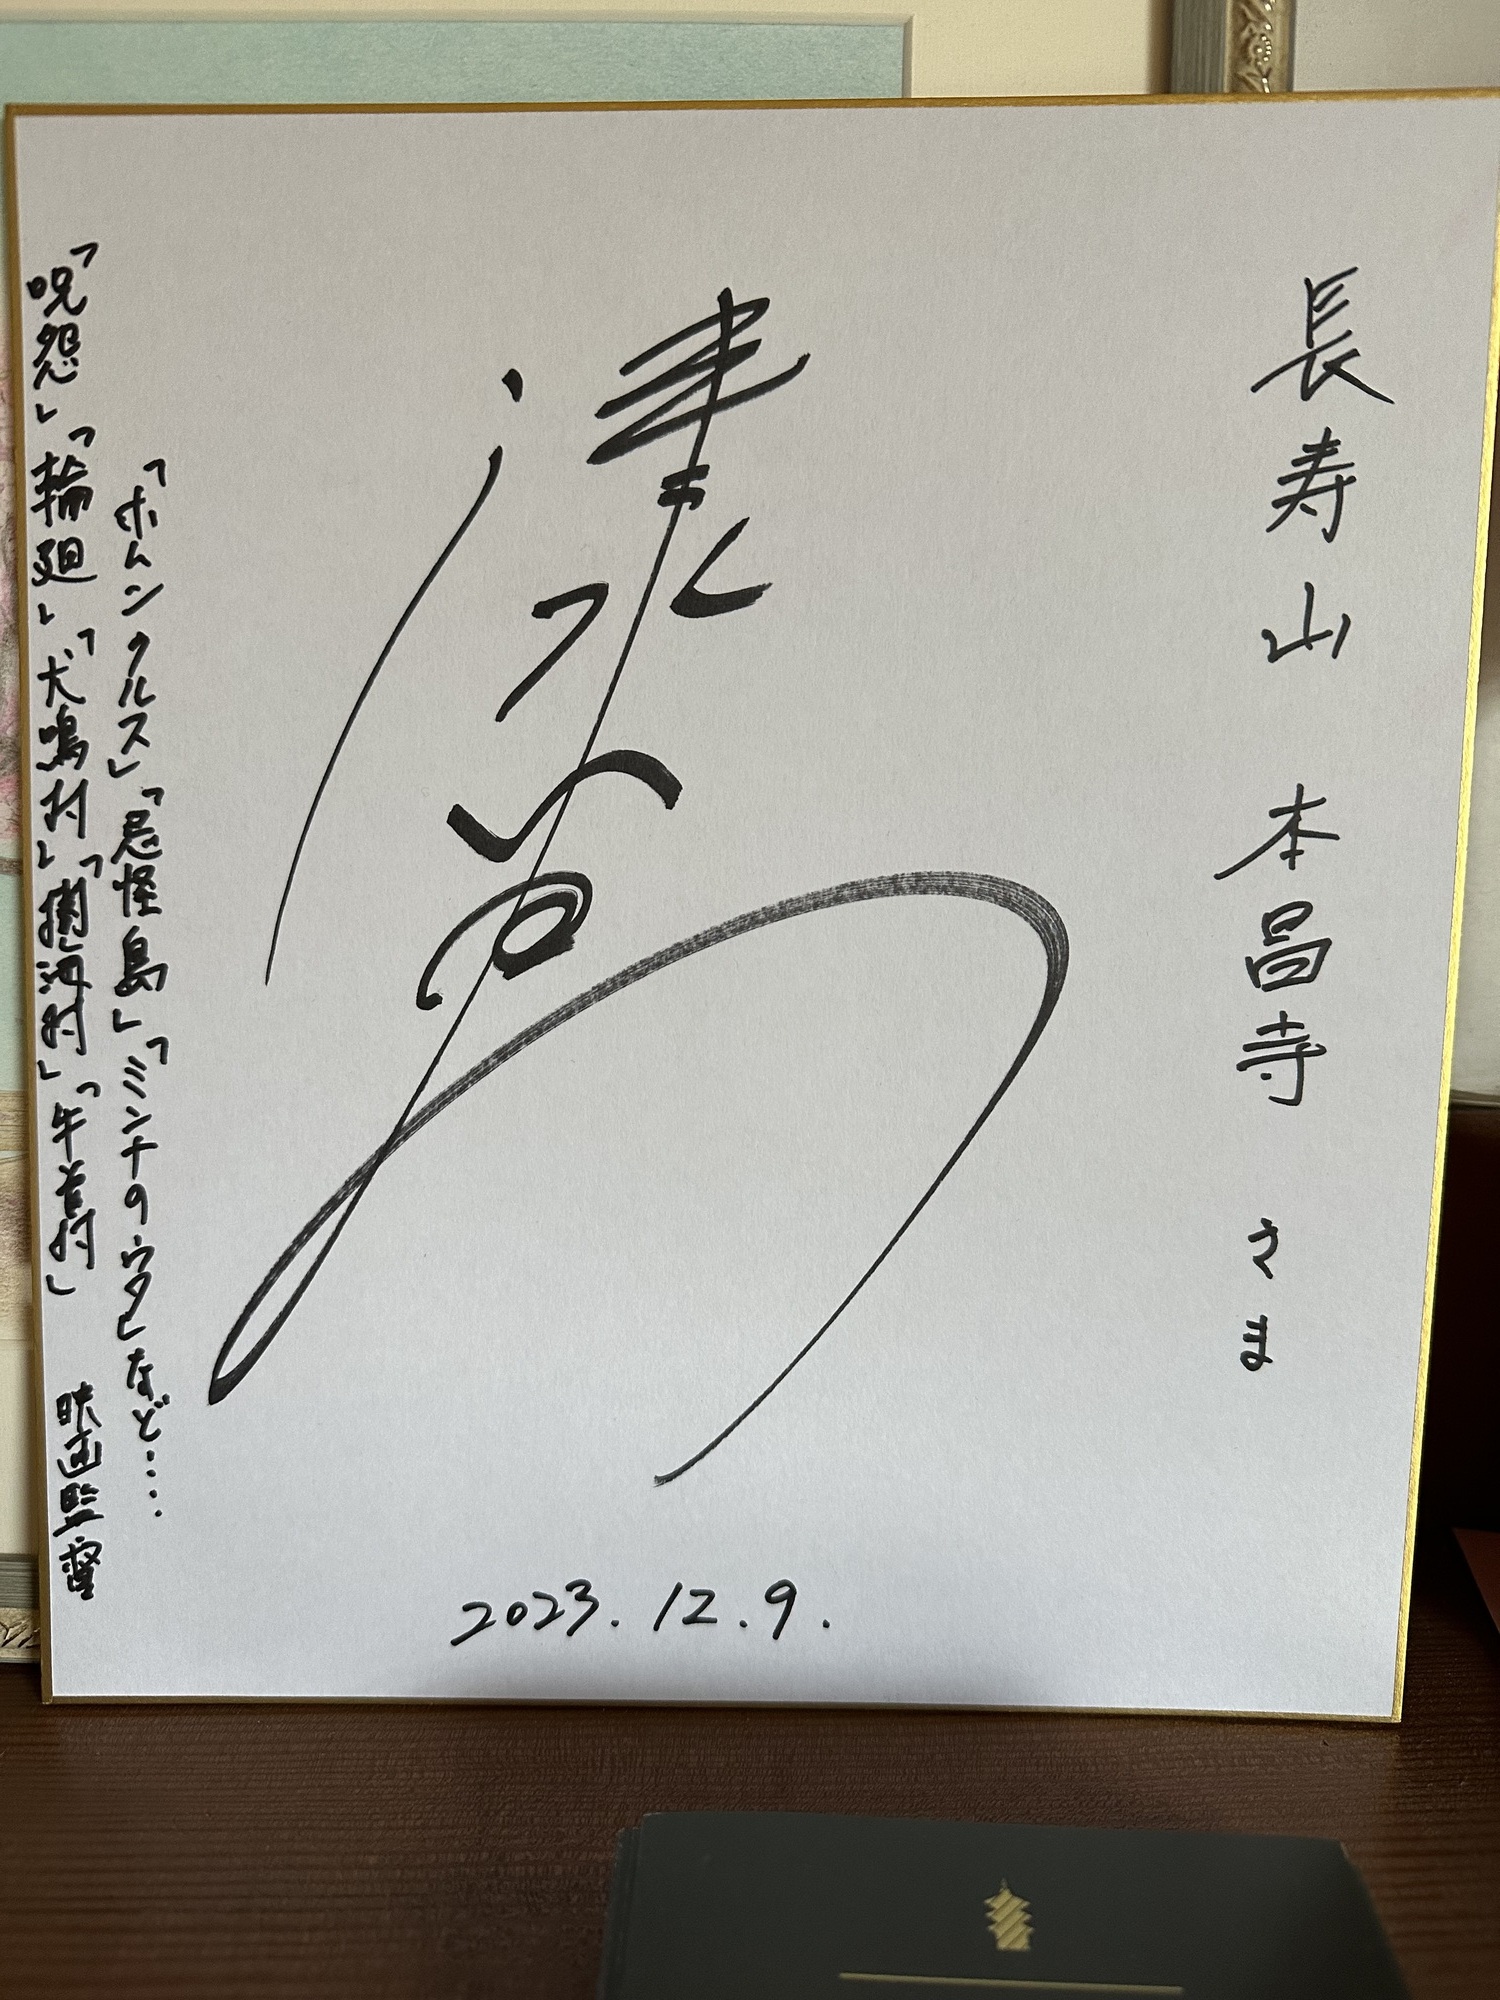 長寿山 本昌寺 さま
「ホムンクルス」「忌怪島」「ミンナのウタ」など‥‥
「呪怨」「輪廻」「犬鳴村」「樹海村」「牛首村」 映画監督
2023.12.9.